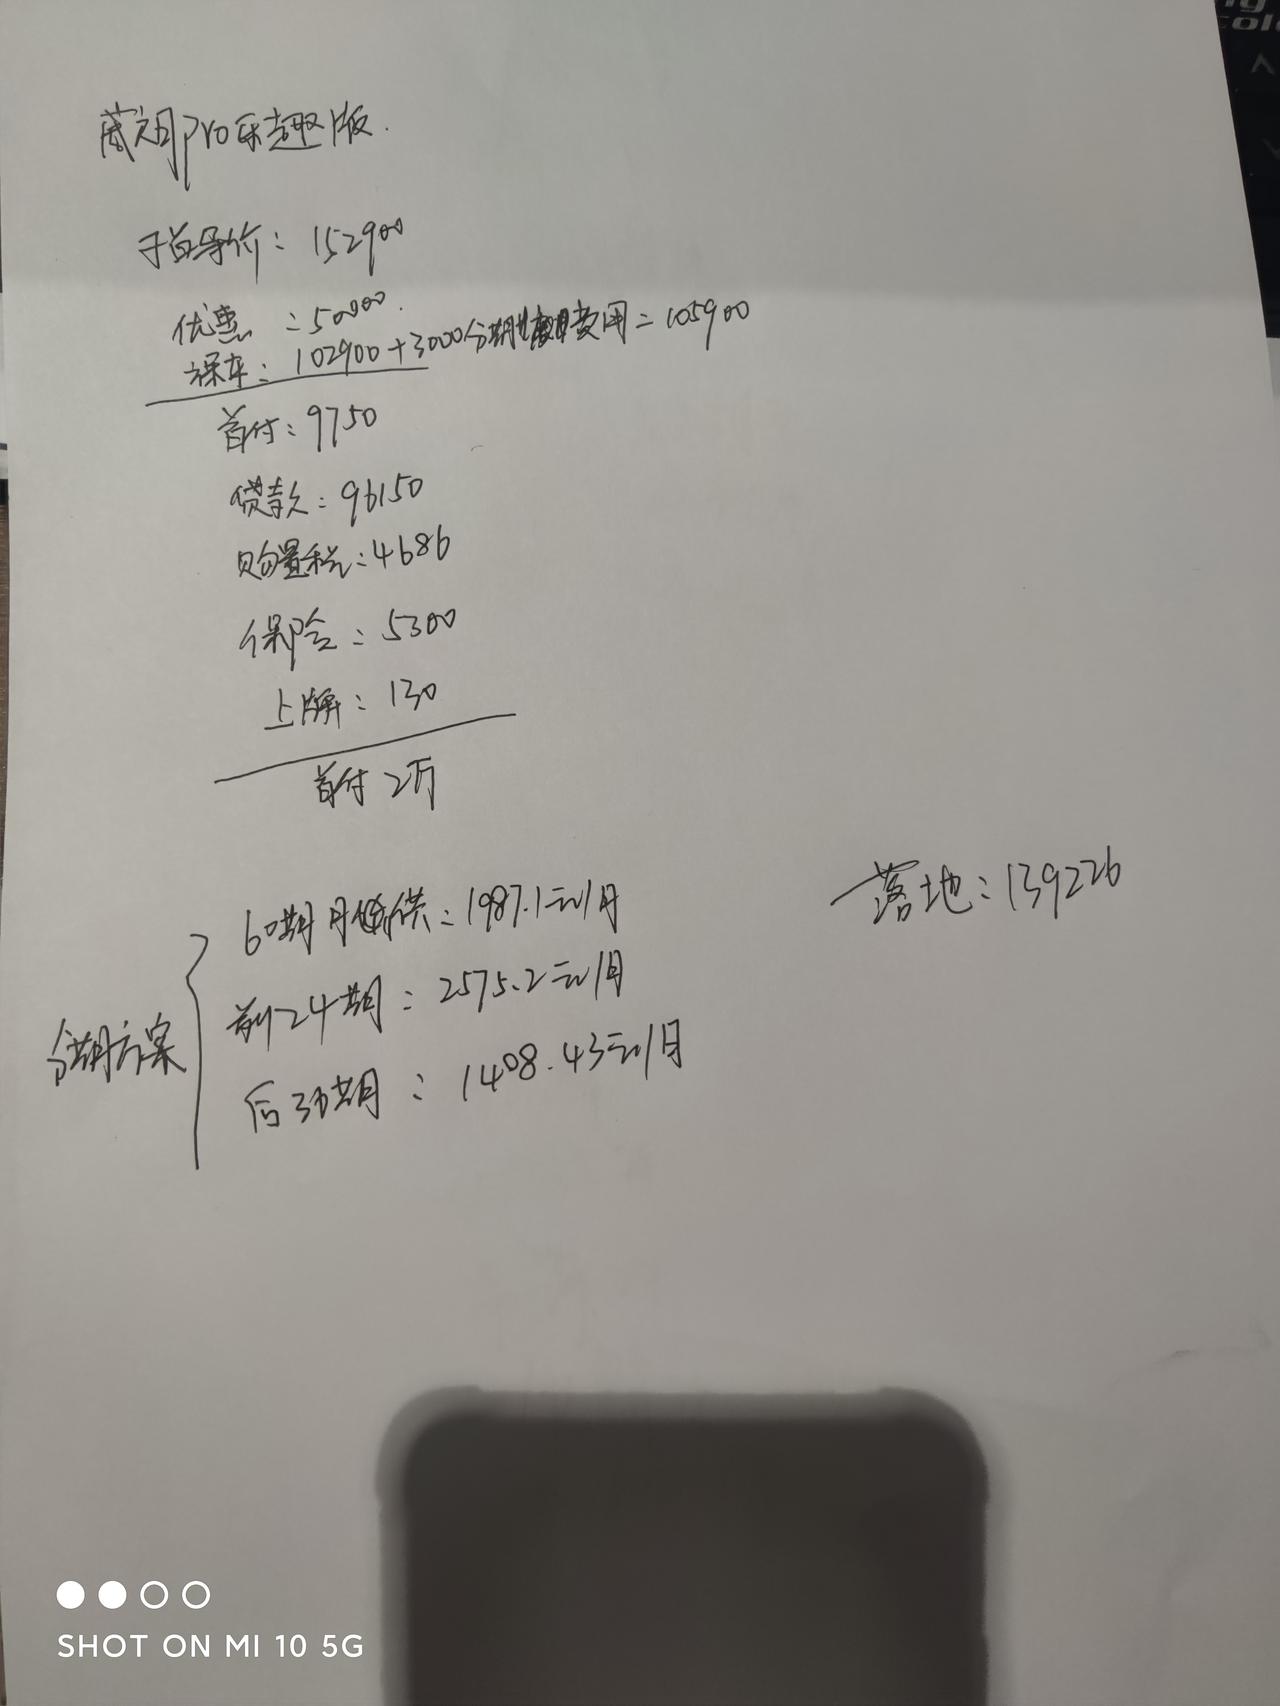 威朗pro乐趣版.
指导价：152900
优惠：50000.
裸车：102900+3000分期费用=105900
首付：9750
贷款：96150
购置税：4686
保险：5300
上牌：130
首付 2万
落地：139226
分期方案
60期月供：1987.1元/月
前24期：2575.2元/月
后36期：1408.43元/月
SHOT ON MI 10 5G